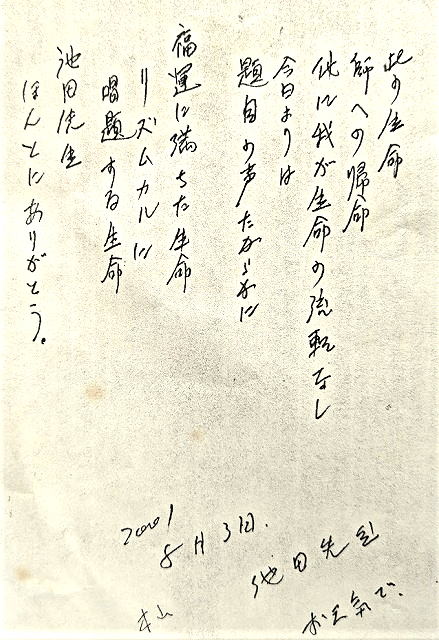 此の生命
師への帰命
他に我が生命の流転なし
今日よりは
題目の声たからかに
福運に満ちた生命
リズムカルに
唱題する生命
池田先生
ほんとにありがとう。
2001
8月3日.
池田先生
お元氣で.
本山